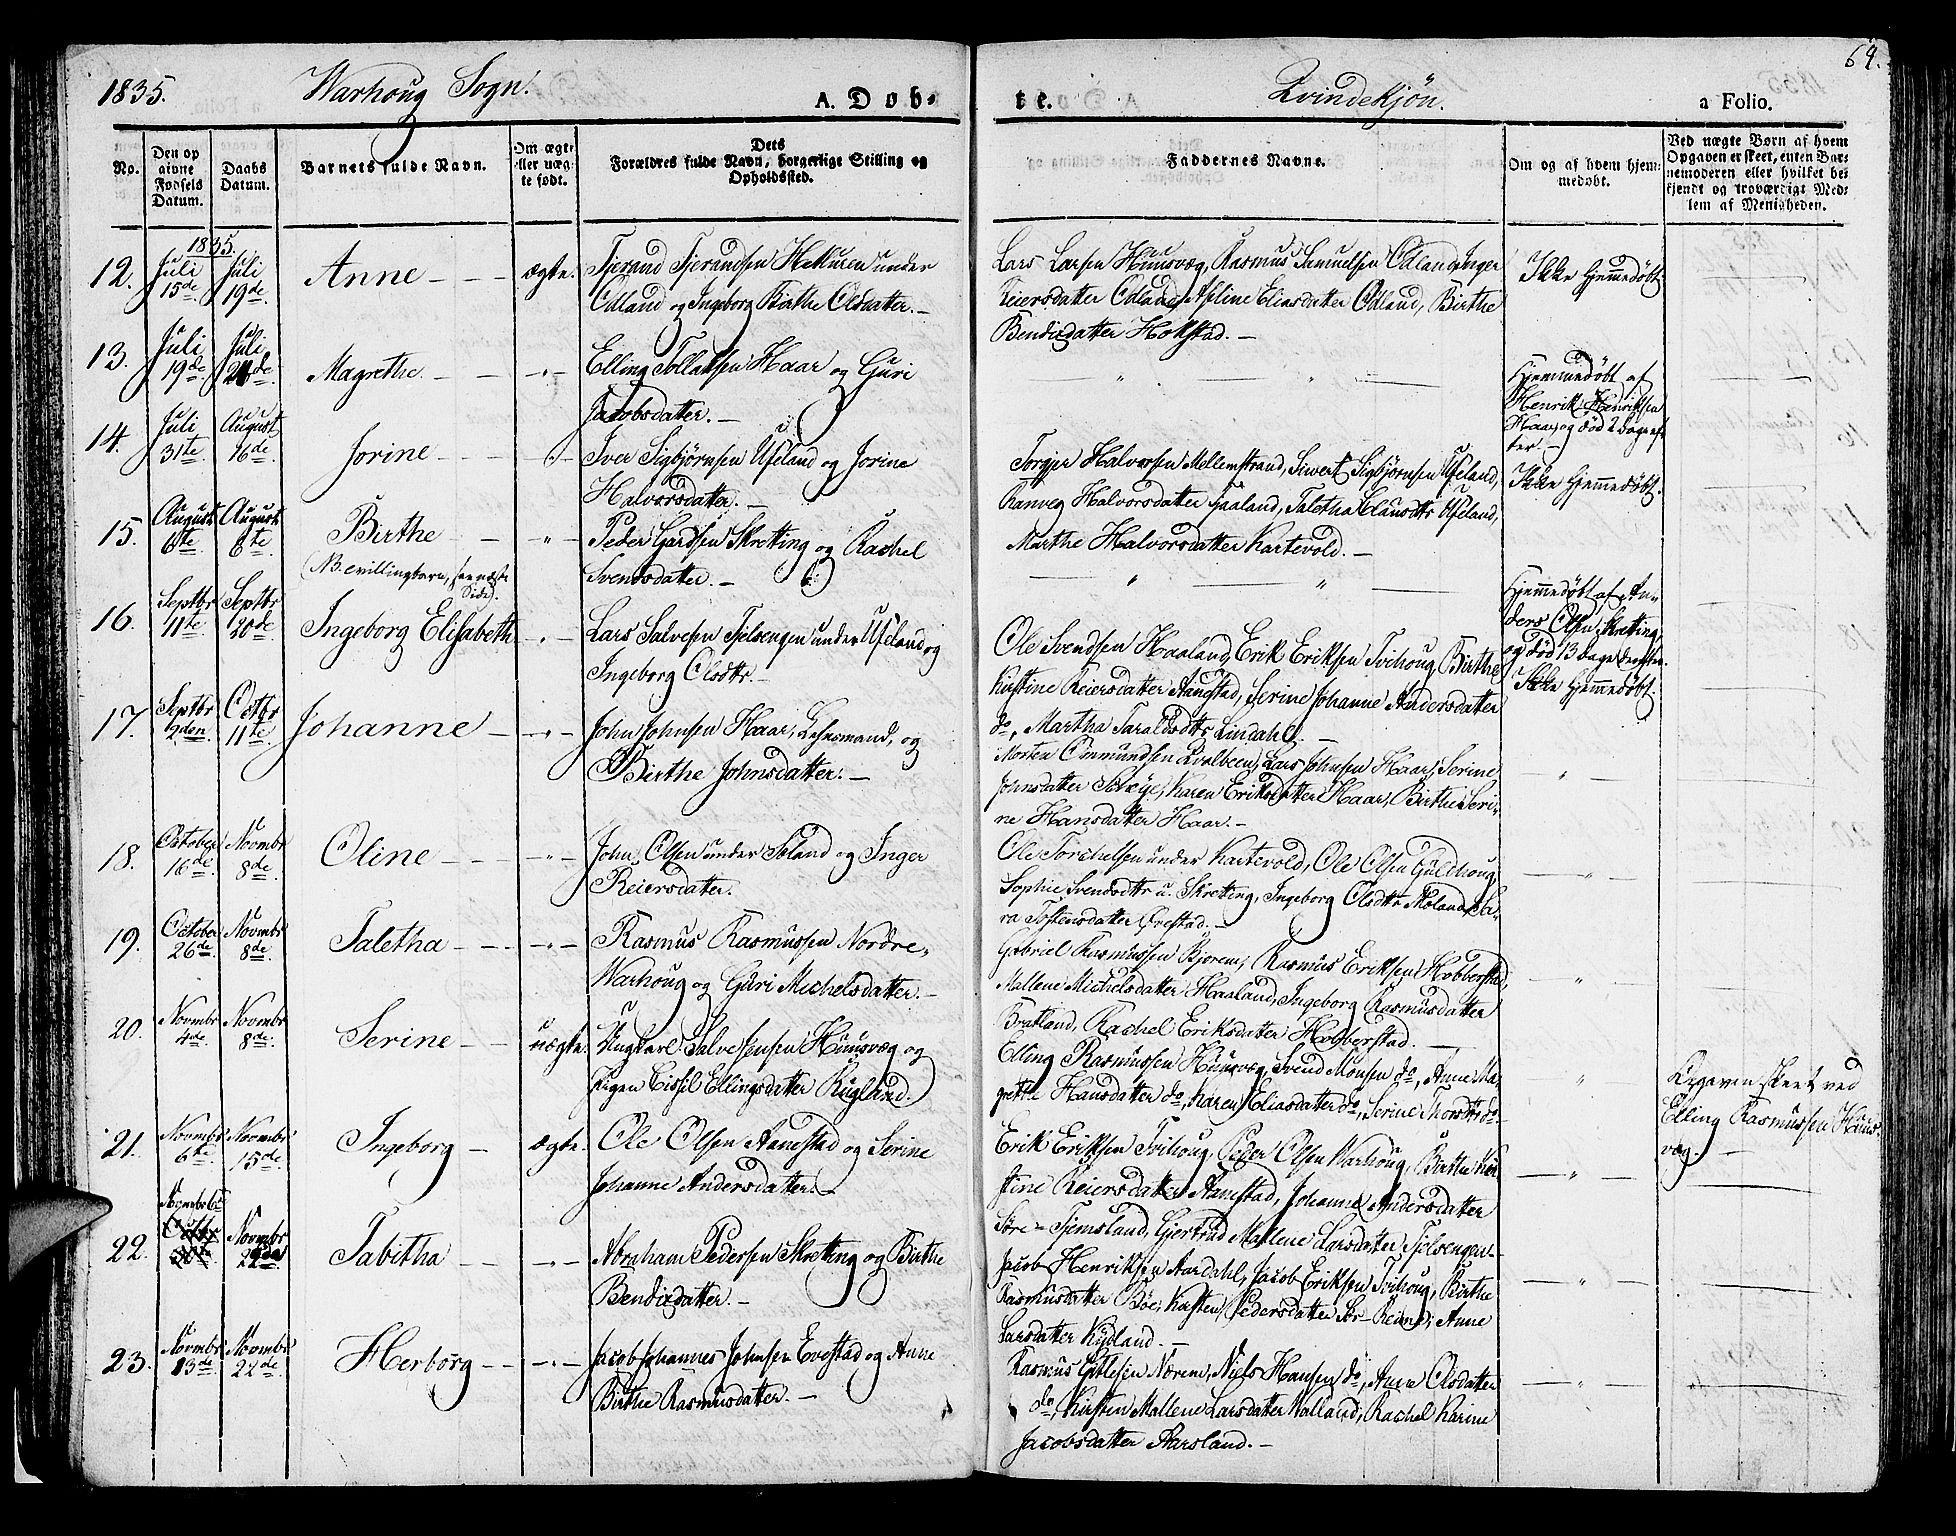 1835. Warhoug Sogn. A. Døb-
te. Qvindekjön. a Folio. 64.
No.
Den op
givne
Fødsels
Datum.
Daabs
Datum.
Barnets fulde Navn.
Om ægte
eller uæg-
te født.
Dets
Forældres fulde Navn, borgerlige Stilling og
Opholdssted.
Faddernes Navne.
Om og af hvem hjem-
medøbt.
Ved uægte Børn af hvem
Opgaven er skeet, enten Bar-
nemoderen eller hvilket be-
kjendt og troværdigt Med-
lem af Menigheden.
1835.
12. Juli 15de Juli 19de Anne ægte.
Tjerand Tjerandsen Hekuren under
Odland og Ingeborg Birthe Olsdatter. —
Lars Larsen Huusvæg, Rasmus Samuelsen Odland, Inger
Reiersdatter Odland, Aseline Eliasdatter Odland, Birthe
Bendixdatter Hokstad. —
Ikke hjemmedøbt.
13. Juli 19de Juli de Magrethe. — " —
Elling Tollaksen Haar og Guri
Jacobsdatter. —
Hjemmedøbt af
Henrik Henriksen
Haar og død 2 Dage ef-
ter —
14. Juli 31te August 16de Jorine — " —
Iver Sigbjörnsen Ueland og Jorine
Halvorsdatter. —
Torgjer Halvorsen Mellemstrand, Siwert Sigbjörnsen Ueland,
Ranveg Halvorsdatter Gaaland, Taletha Clausdtr Ueland,
Marthe Halvorsdatter Kartevold. —
Ikke hjemmedøbt.
15. August 6te August 6te Birthe — " —
(NB. tvillingbarn, see næste
Side).
Peder Gardsen Skretting og Rachel
Svendsdatter. —
Hjemmedøbt af An-
ders Olsen Skretting
og død 13 Dage derefter.
16. Septbr 11te Septbr 20de Ingeborg Elisabeth — " —
Lars Salvesen Tjelsengen under Ueland og
Ingeborg Olsdtr. —
Ole Svendsen Haaland, Erik Eriksen Tvihoug, Birthe
Kirstine Reiersdatter Aanestad, Serine Johanne Andersdatter
do, Martha Taraldsdtr Lindahl. —
Ikke hjemmedøbt.
17. Septbr den Octbr 11te Johanne — " —
John Johnsen Haar, Lehnsmand, og
Birthe Johnsdatter. —
Morten Ommundsen Qvalbeen, Lars Johnsen Haar, Serine
Johnsdatter, Karen Eriksdatter Haar, Birthe Seri-
ne Hansdatter Haar. —
18. October 16de Novmbr 8de Oline — " —
John Olsen under Soland og Inger
Reiersdatter.
Ole Torchelsen under Kartevold, Ole Olsen Guldhoug,
Sophie Svendsdtr u. Skretting, Ingeborg Olsdtr Moland, Sa-
ra Tostensdatter Ørestad. —
19. October 26de Novmbr 8de Taletha — " —
Rasmus Rasmussen Nordre-
Warhoug og Guri Michelsdatter. —
Gabriel Rasmussen Bjorem, Rasmus Eriksen Hobberstad,
Mallene Michelsdatter Haaland, Ingeborg Rasmusdatter
Bratland, Rachel Eriksdatter Hobberstad. —
20. Novmbr 4de Novmbr 8de Serine — uægte.
Ungkarl Salve Jensen Huusvæg og
Pigen Cissel Ellingsdatter Kugland.
Elling Rasmussen Huusvæg, Svend Monsen do, Anne Ma-
grethe Hansdatter do, Karen Eliasdatter do, Serine Thorsdtr do. —
Opgaven skeet ved
Elling Rasmussen Huus-
væg. —
21. Novmbr 6te Novmbr 15de Ingeborg — ægte.
Ole Olsen Aanestad og Serine
Johanne Andersdatter. —
Erik Eriksen Tvihoug, Peder Olsen Warhoug, Birthe Kir-
stine Reiersdatter Aanestad, Johanne Andersdatter
Söre-Tjemsland, Gjertrud Mallene Larsdatter Tjelsengen —
22. Novmbr 6te Novmbr 22de Tabitha — " —
Abraham Pedersen Skretting og Birthe
Bendixdatter. —
Jacob Henriksen Aardahl, Jacob Eriksen Tvihoug, Birthe
Rasmusdatter Böe, Kirsten Pedersdatter Sör-Reime, Anne
Larsdatter Kydland. —
23. Novmbr 13de Novmbr 22de Herborg — " —
Jacob Johannes Johnsen Evestad og Anne
Birthe Rasmusdatter. —
Rasmus Gitlesen Nærem, Niels Hansen do, Anne Olsdatter
do, Kirsten Mallene Larsdatter Walland, Rachel Karine
Jacobsdatter Aarsland. —